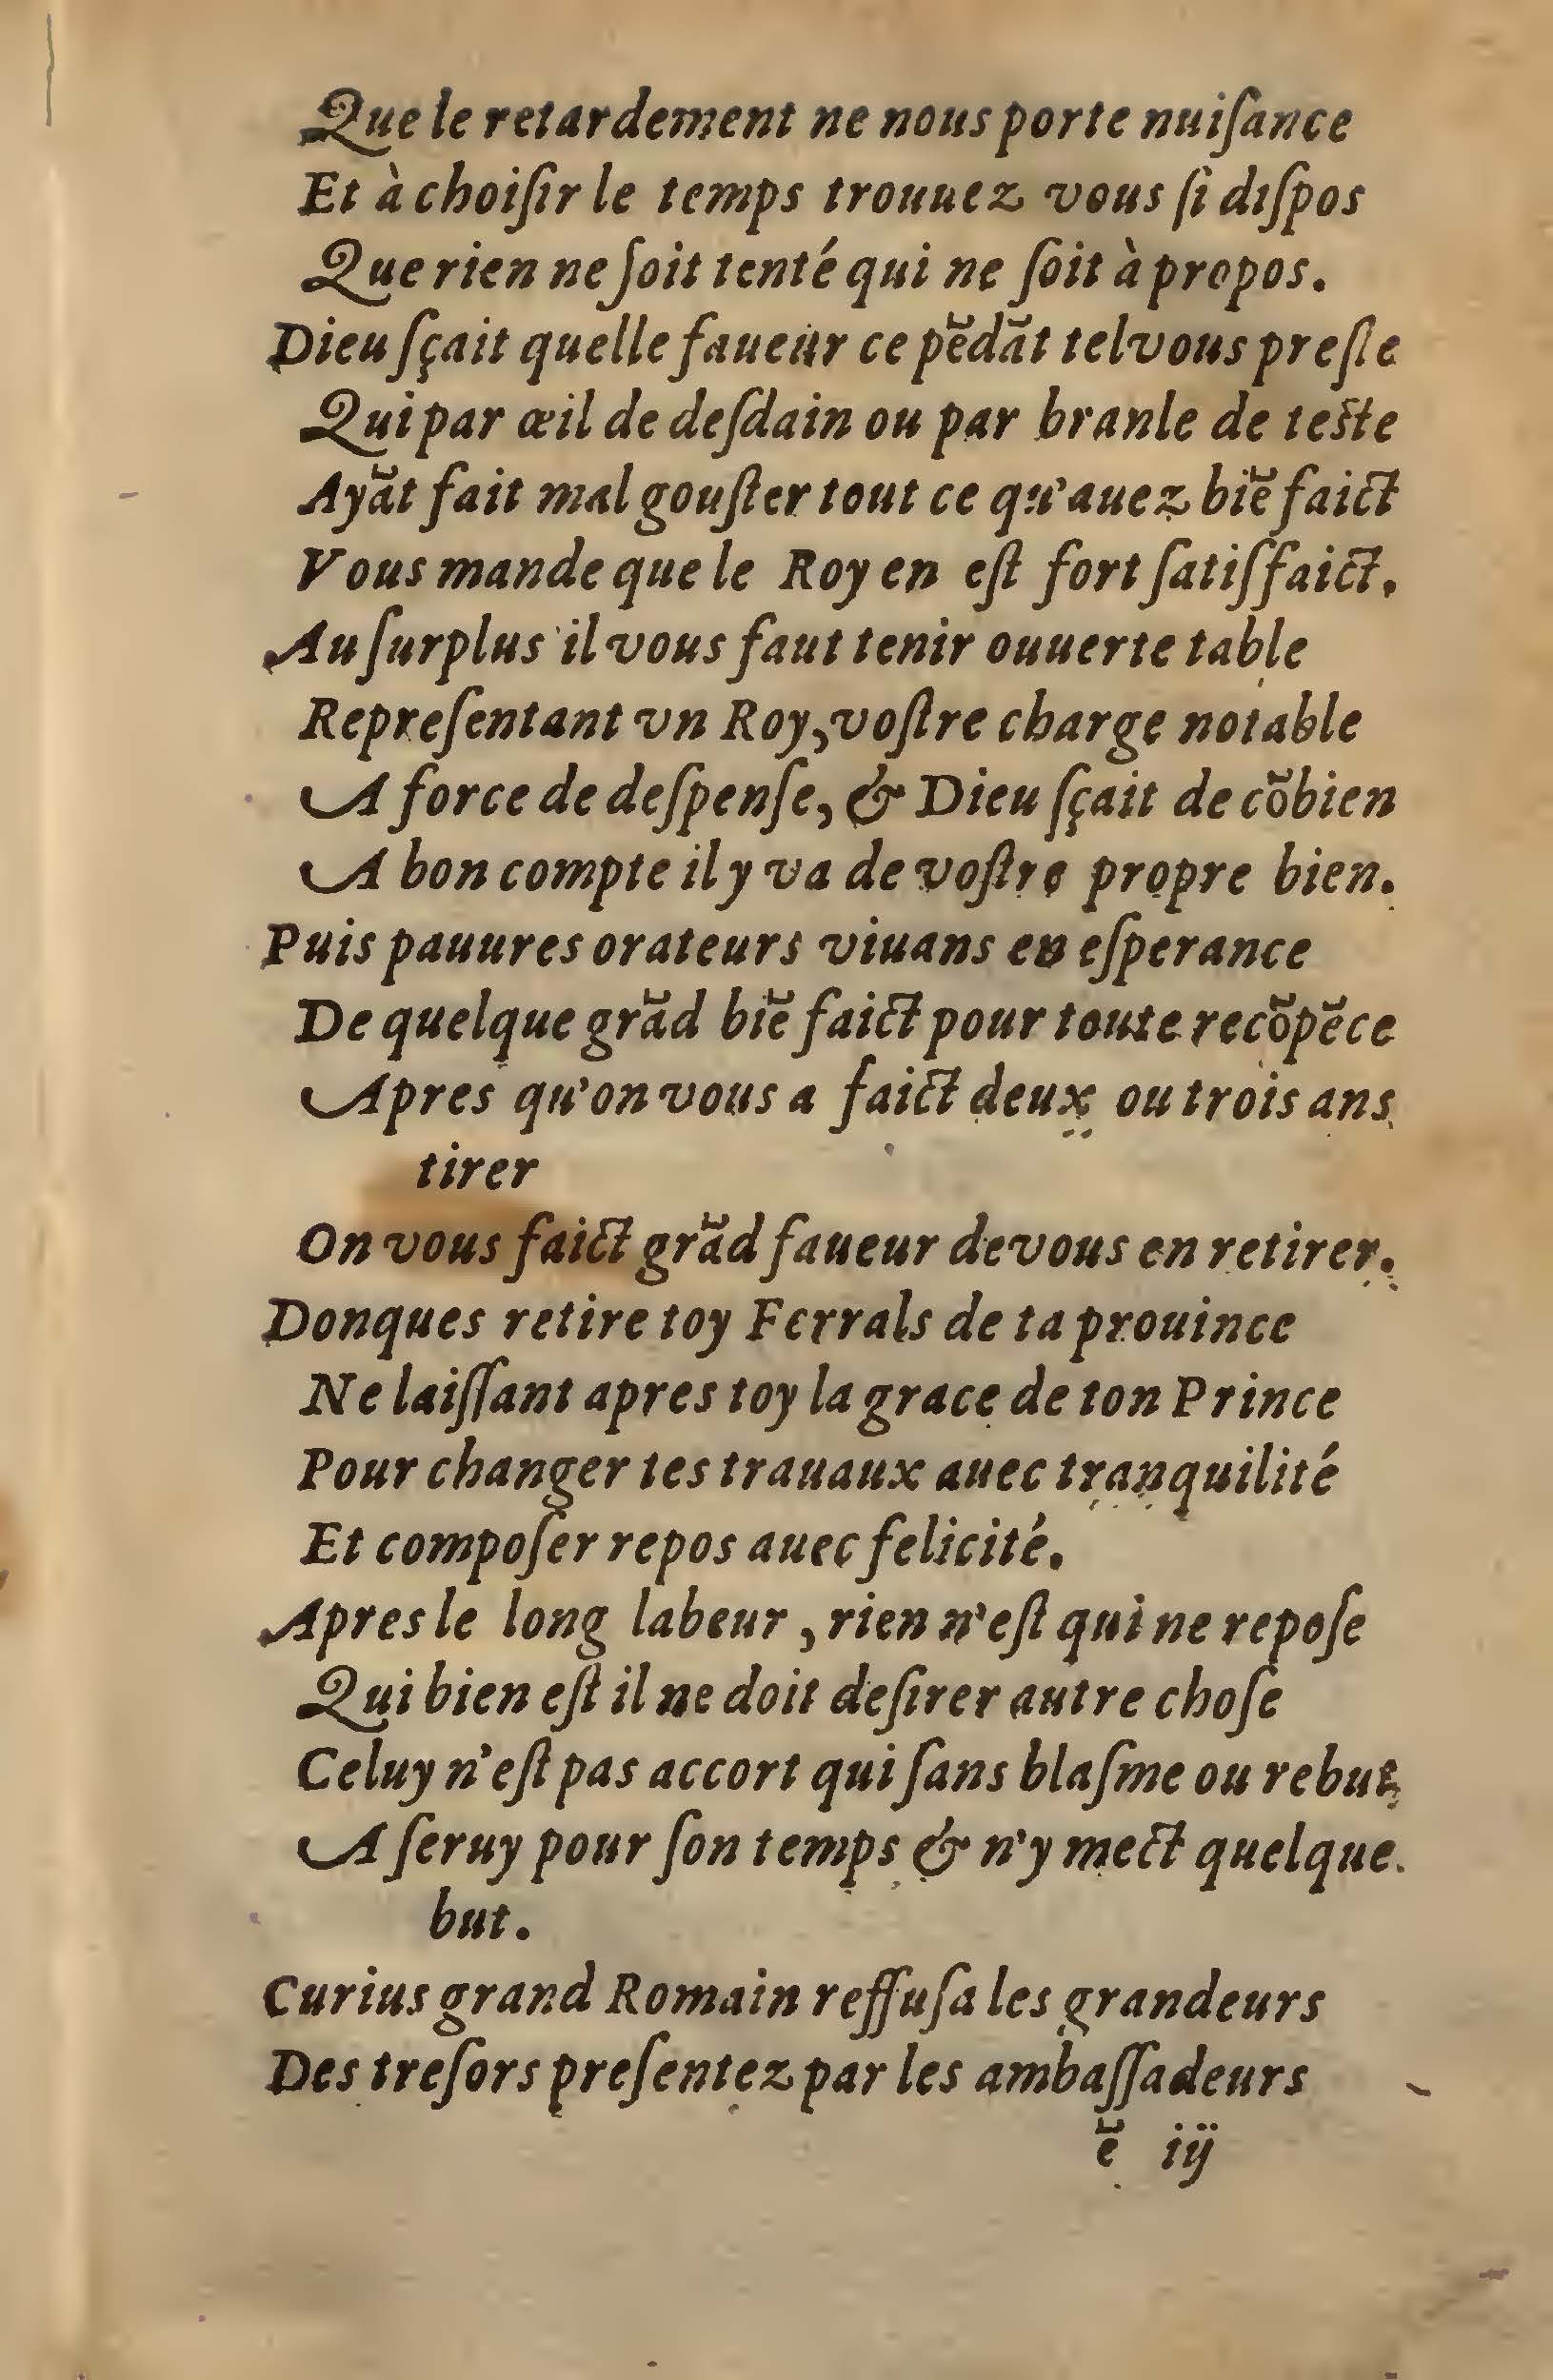 Que le retardement ne nous porte nuiſance
Et à choiſir le temps trouuez vous ſi diſpos
Que rien ne ſoit tenté qui ne ſoit à propos.
Dieu ſçait quelle faueur ce pẽdãt tel vous preſte
Qui par œil de deſdain ou par branle de teſte
Ayãt fait mal gouſter tout ce qu'auez biẽ faict
Vous mande que le Roy en eſt fort ſatiſfaict.
Au ſurplus il vous faut tenir ouuerte table
Repreſentant vn Roy, voſtre charge notable
A force de deſpenſe, & Dieu ſçait de cõbien
A bon compte il y va de voſtre propre bien.
Puis pauures orateurs viuans en eſperance
De quelque grãd biẽ faict pour toute recõpẽce
Apres qu'on vous a faict deux ou trois ans
tirer
On vous faict grãd faueur de vous en retirer.
Donques retire toy Ferrals de ta prouince
Ne laiſſant apres toy la grace de ton Prince
Pour changer tes trauaux auec tranquilité
Et compoſer repos auec felicité.
Apres le long labeur, rien n'eſt qui ne repoſe
Qui bien eſt il ne doit deſirer autre choſe
Celuy n'eſt pas accort qui ſans blaſme ou rebut
A ſeruy pour ſon temps & n'y mect quelque
but.
Curius grand Romain reffuſa les grandeurs
Des treſors preſentez par les ambaſſadeurs
ẽ iij